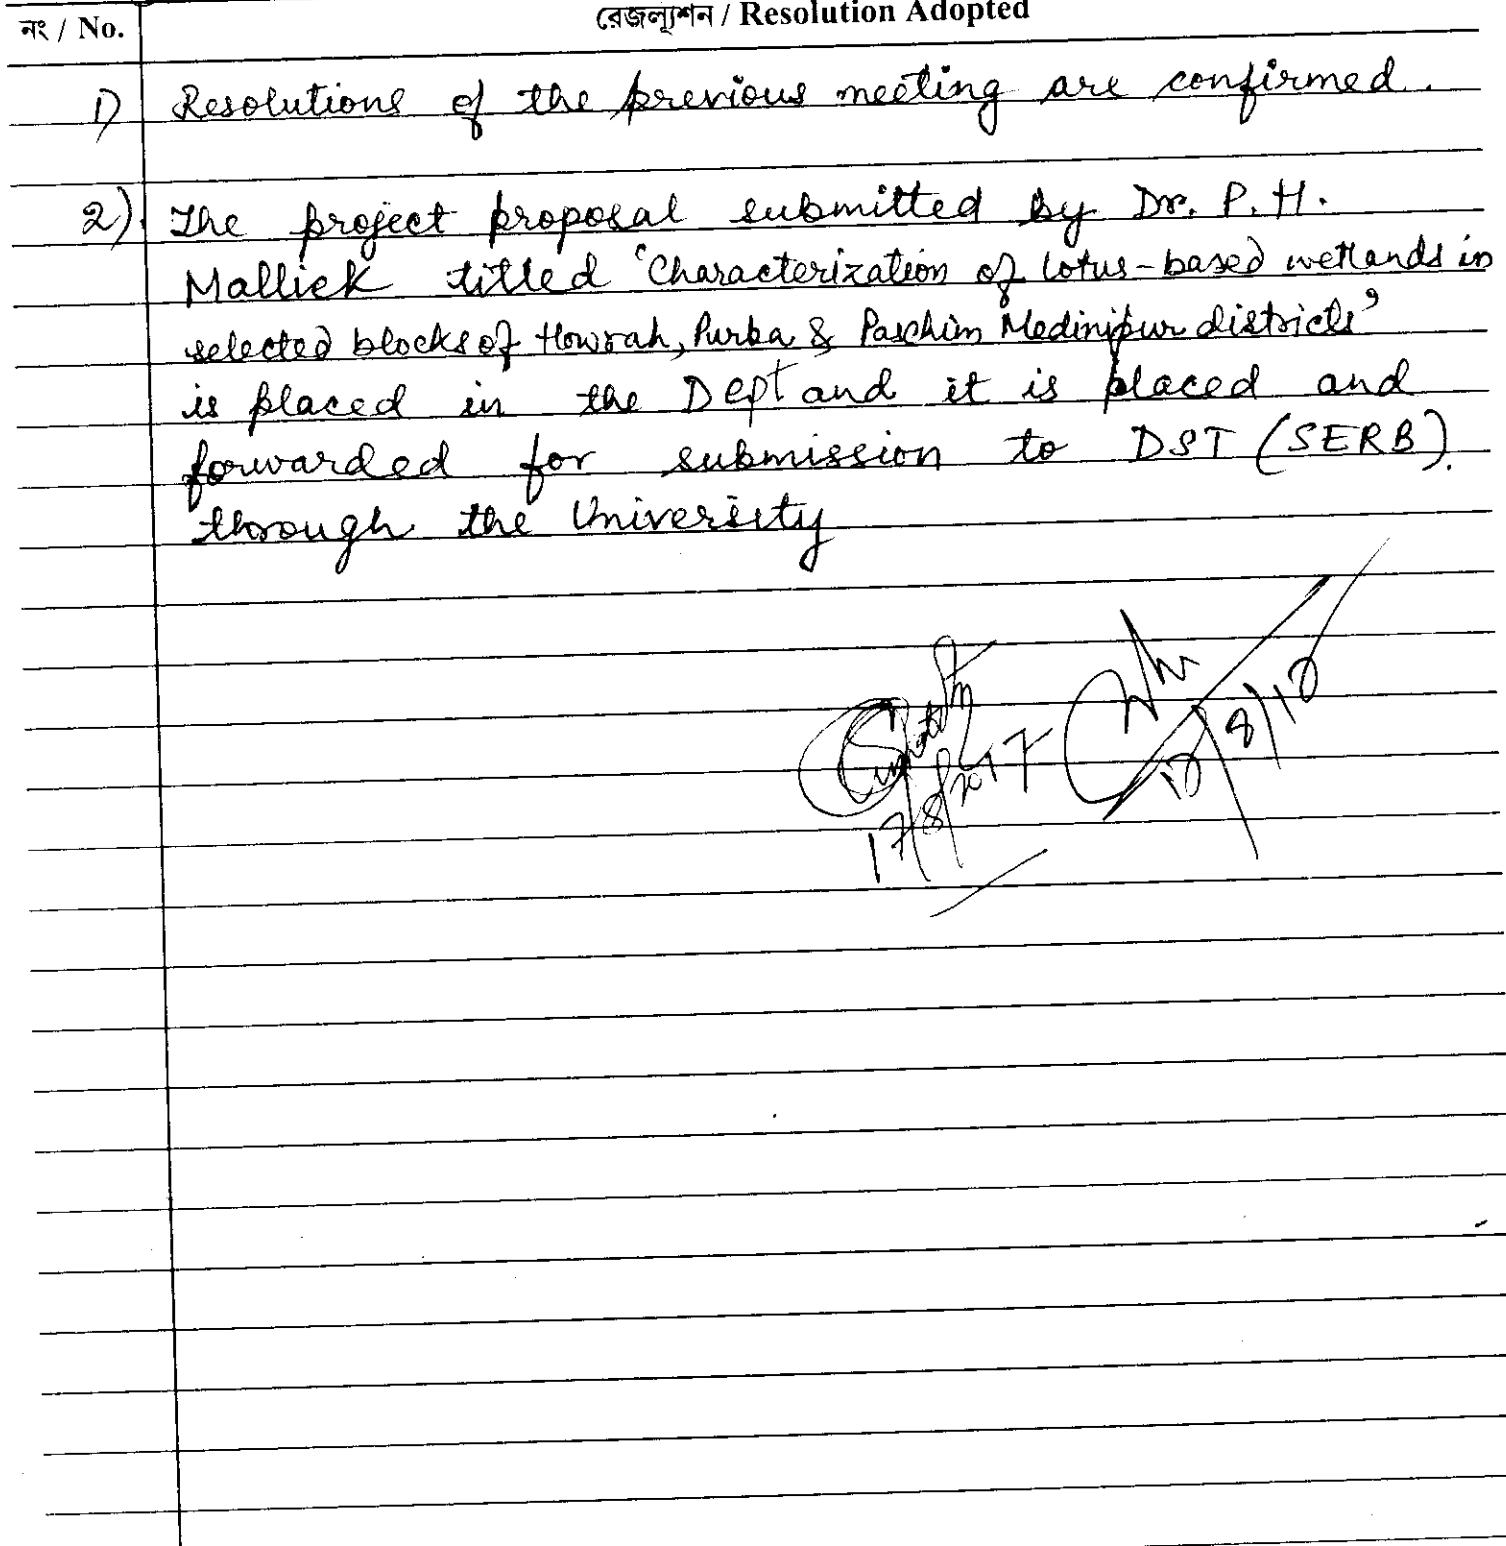 নং / No. রেজল্যুশন / Resolution Adopted
1) Resolutions of the previous meeting are confirmed.
2). The project proposal submitted by Dr. P. H.
Mallick titled 'Characterization of lotus-based wetlands in
selected blocks of Howrah, Purba & Paschim Medinipur districts'
is placed in the Dept and it is placed and
forwarded for submission to DST (SERB).
through the University
17/8/2017